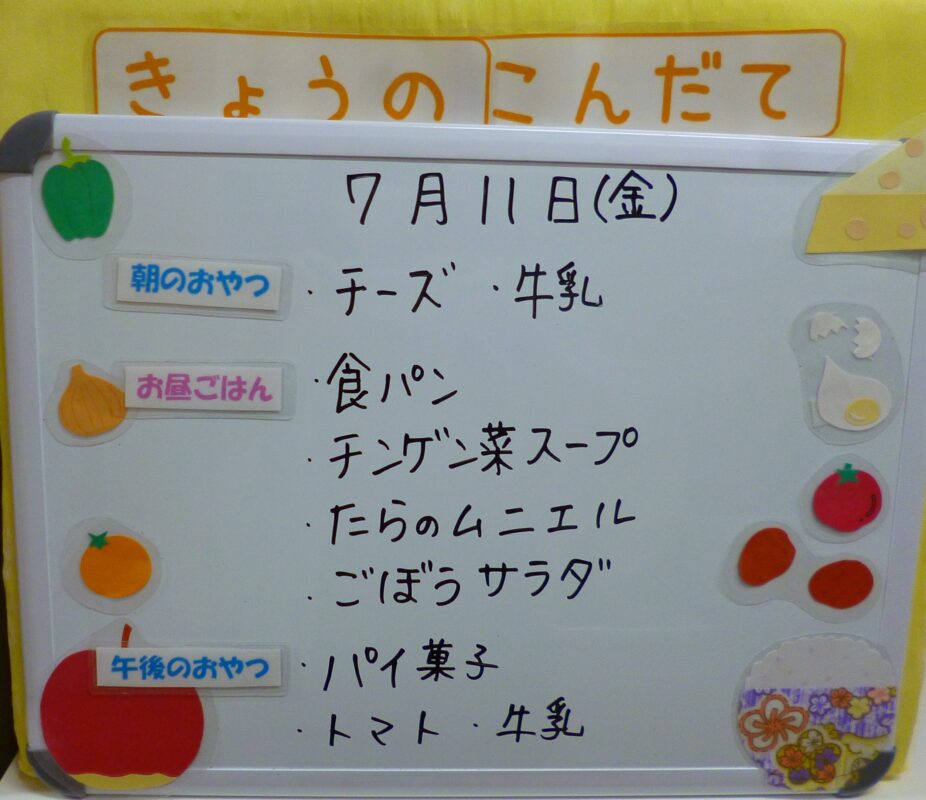 きょうのこんだて
7月11日(金)
朝のおやつ ・チーズ ・牛乳
お昼ごはん ・食パン
・チンゲン菜スープ
・たらのムニエル
・ごぼうサラダ
午後のおやつ ・パイ菓子
・トマト ・牛乳